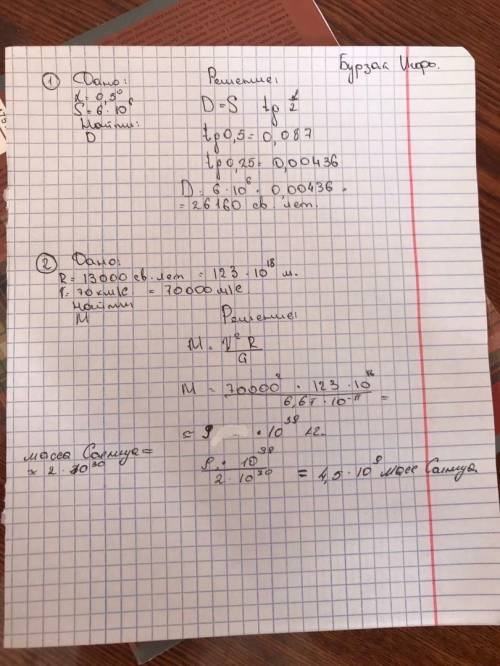 Бурзак Игорь.
① Дано:
α = 0,5°
S = 6 · 10⁶
Найти:
D
Решение:
D = S tg α/2
tg 0,5 = 0,087
tg 0,25 = 0,00436
D = 6 · 10⁶ · 0,00436 =
= 26160 св. лет.
② Дано:
R = 13000 св. лет = 123 · 10¹⁸ м.
V = 70 км/с = 70000 м/с
Найти
M
Решение:
M = V² R / G
M = 70000² · 123 · 10¹⁸ / 6,67 · 10⁻¹¹ =
= 9 · 10³⁹ кг.
масса Солнца =
= 2 · 10³⁰
9 · 10³⁹ / 2 · 10³⁰ = 4,5 · 10⁹ масс Солнца